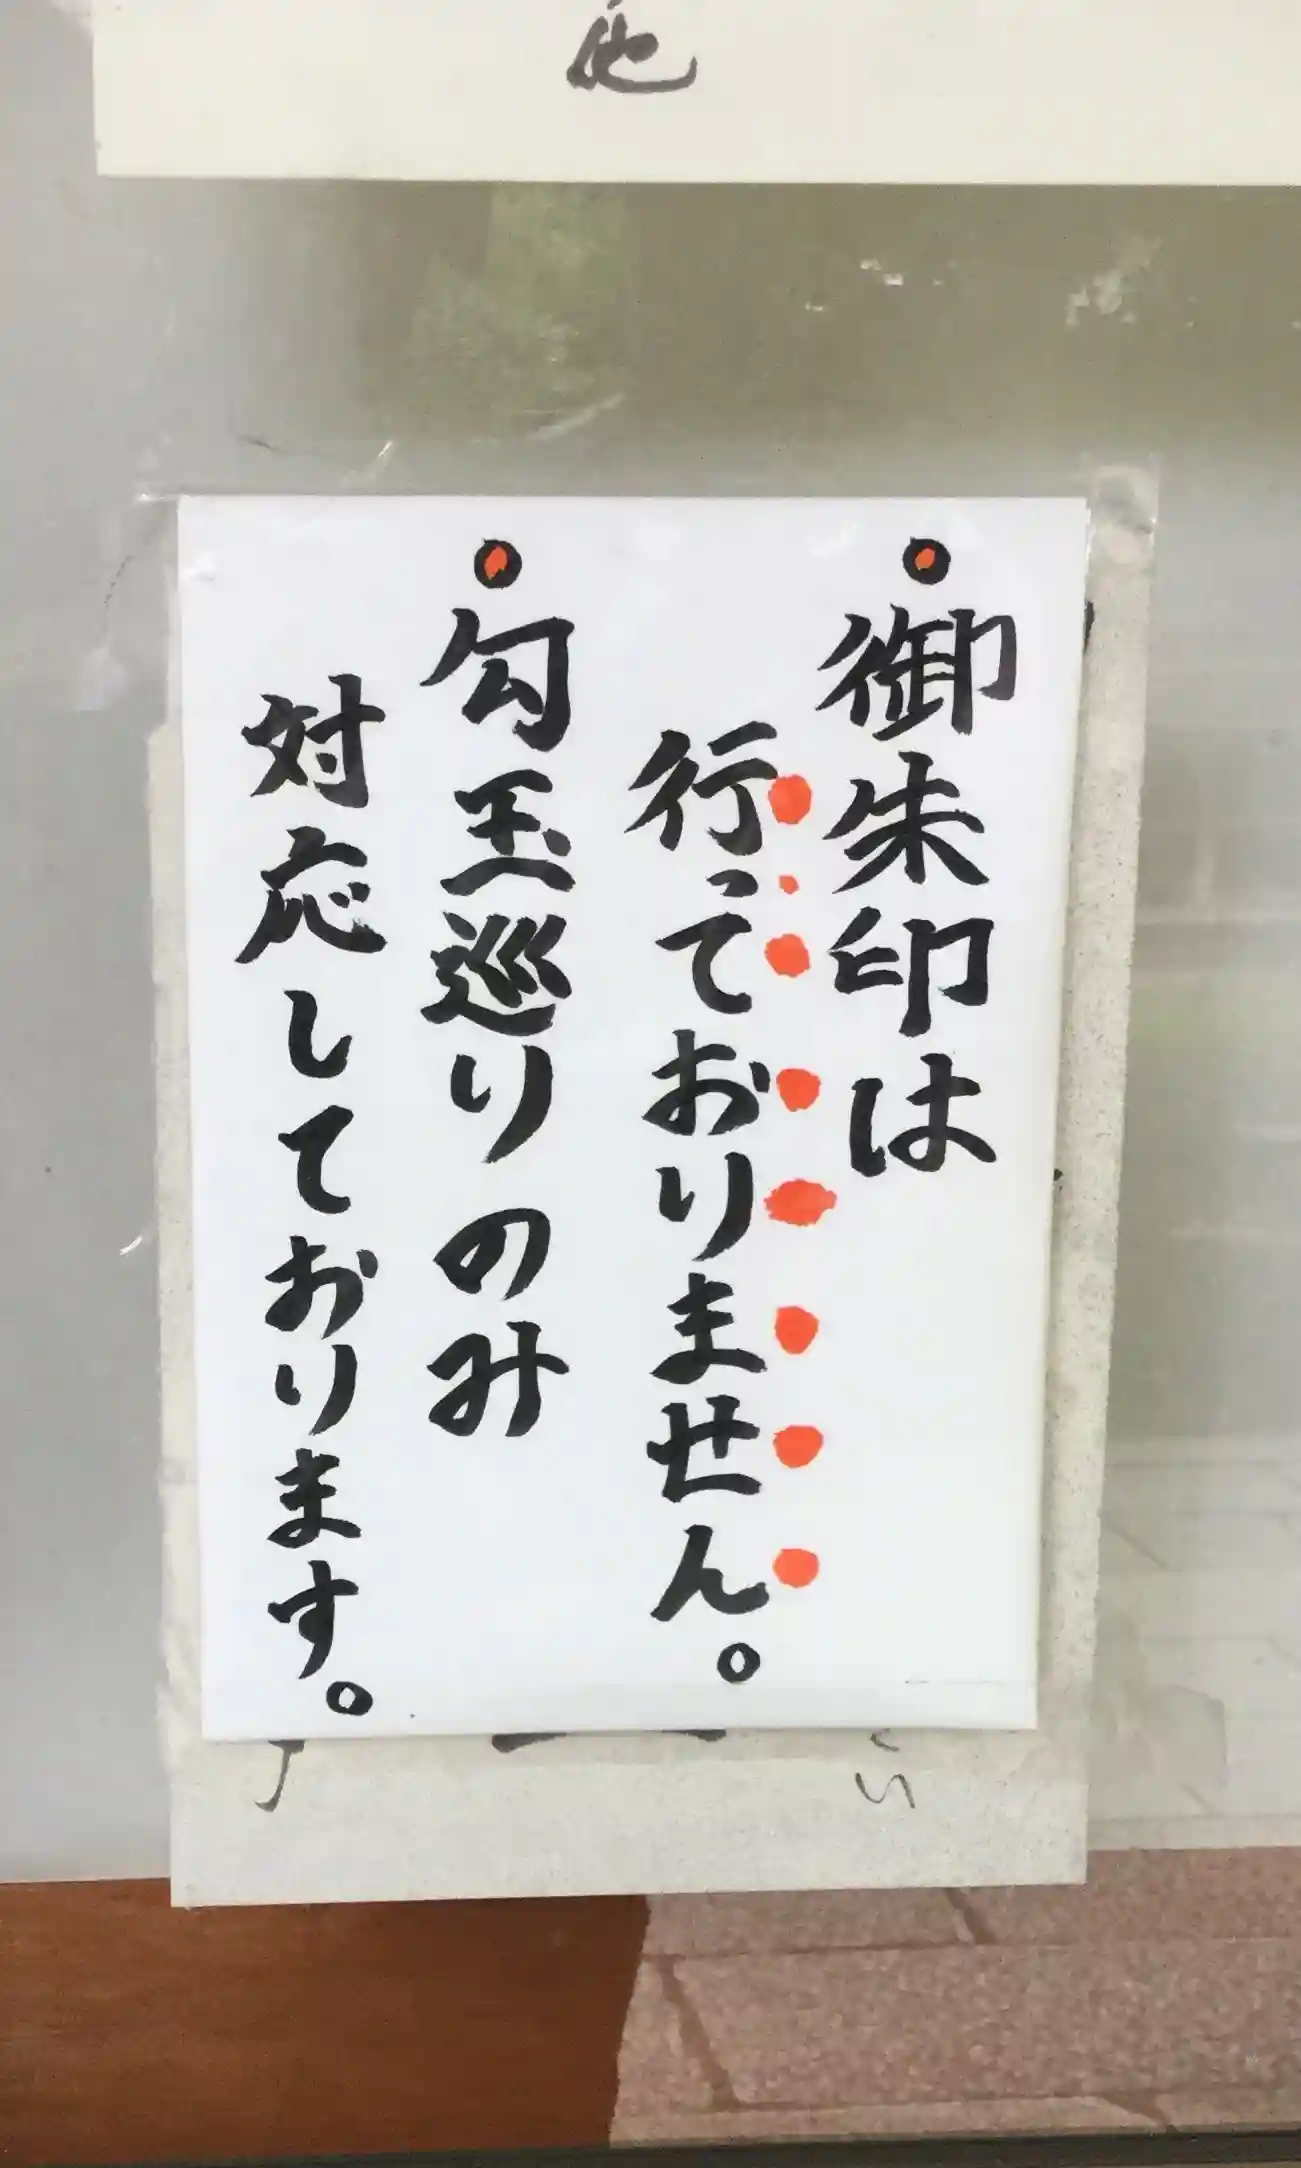 他
御朱印は
行っておりません。
勾玉巡りのみ
対応しております。